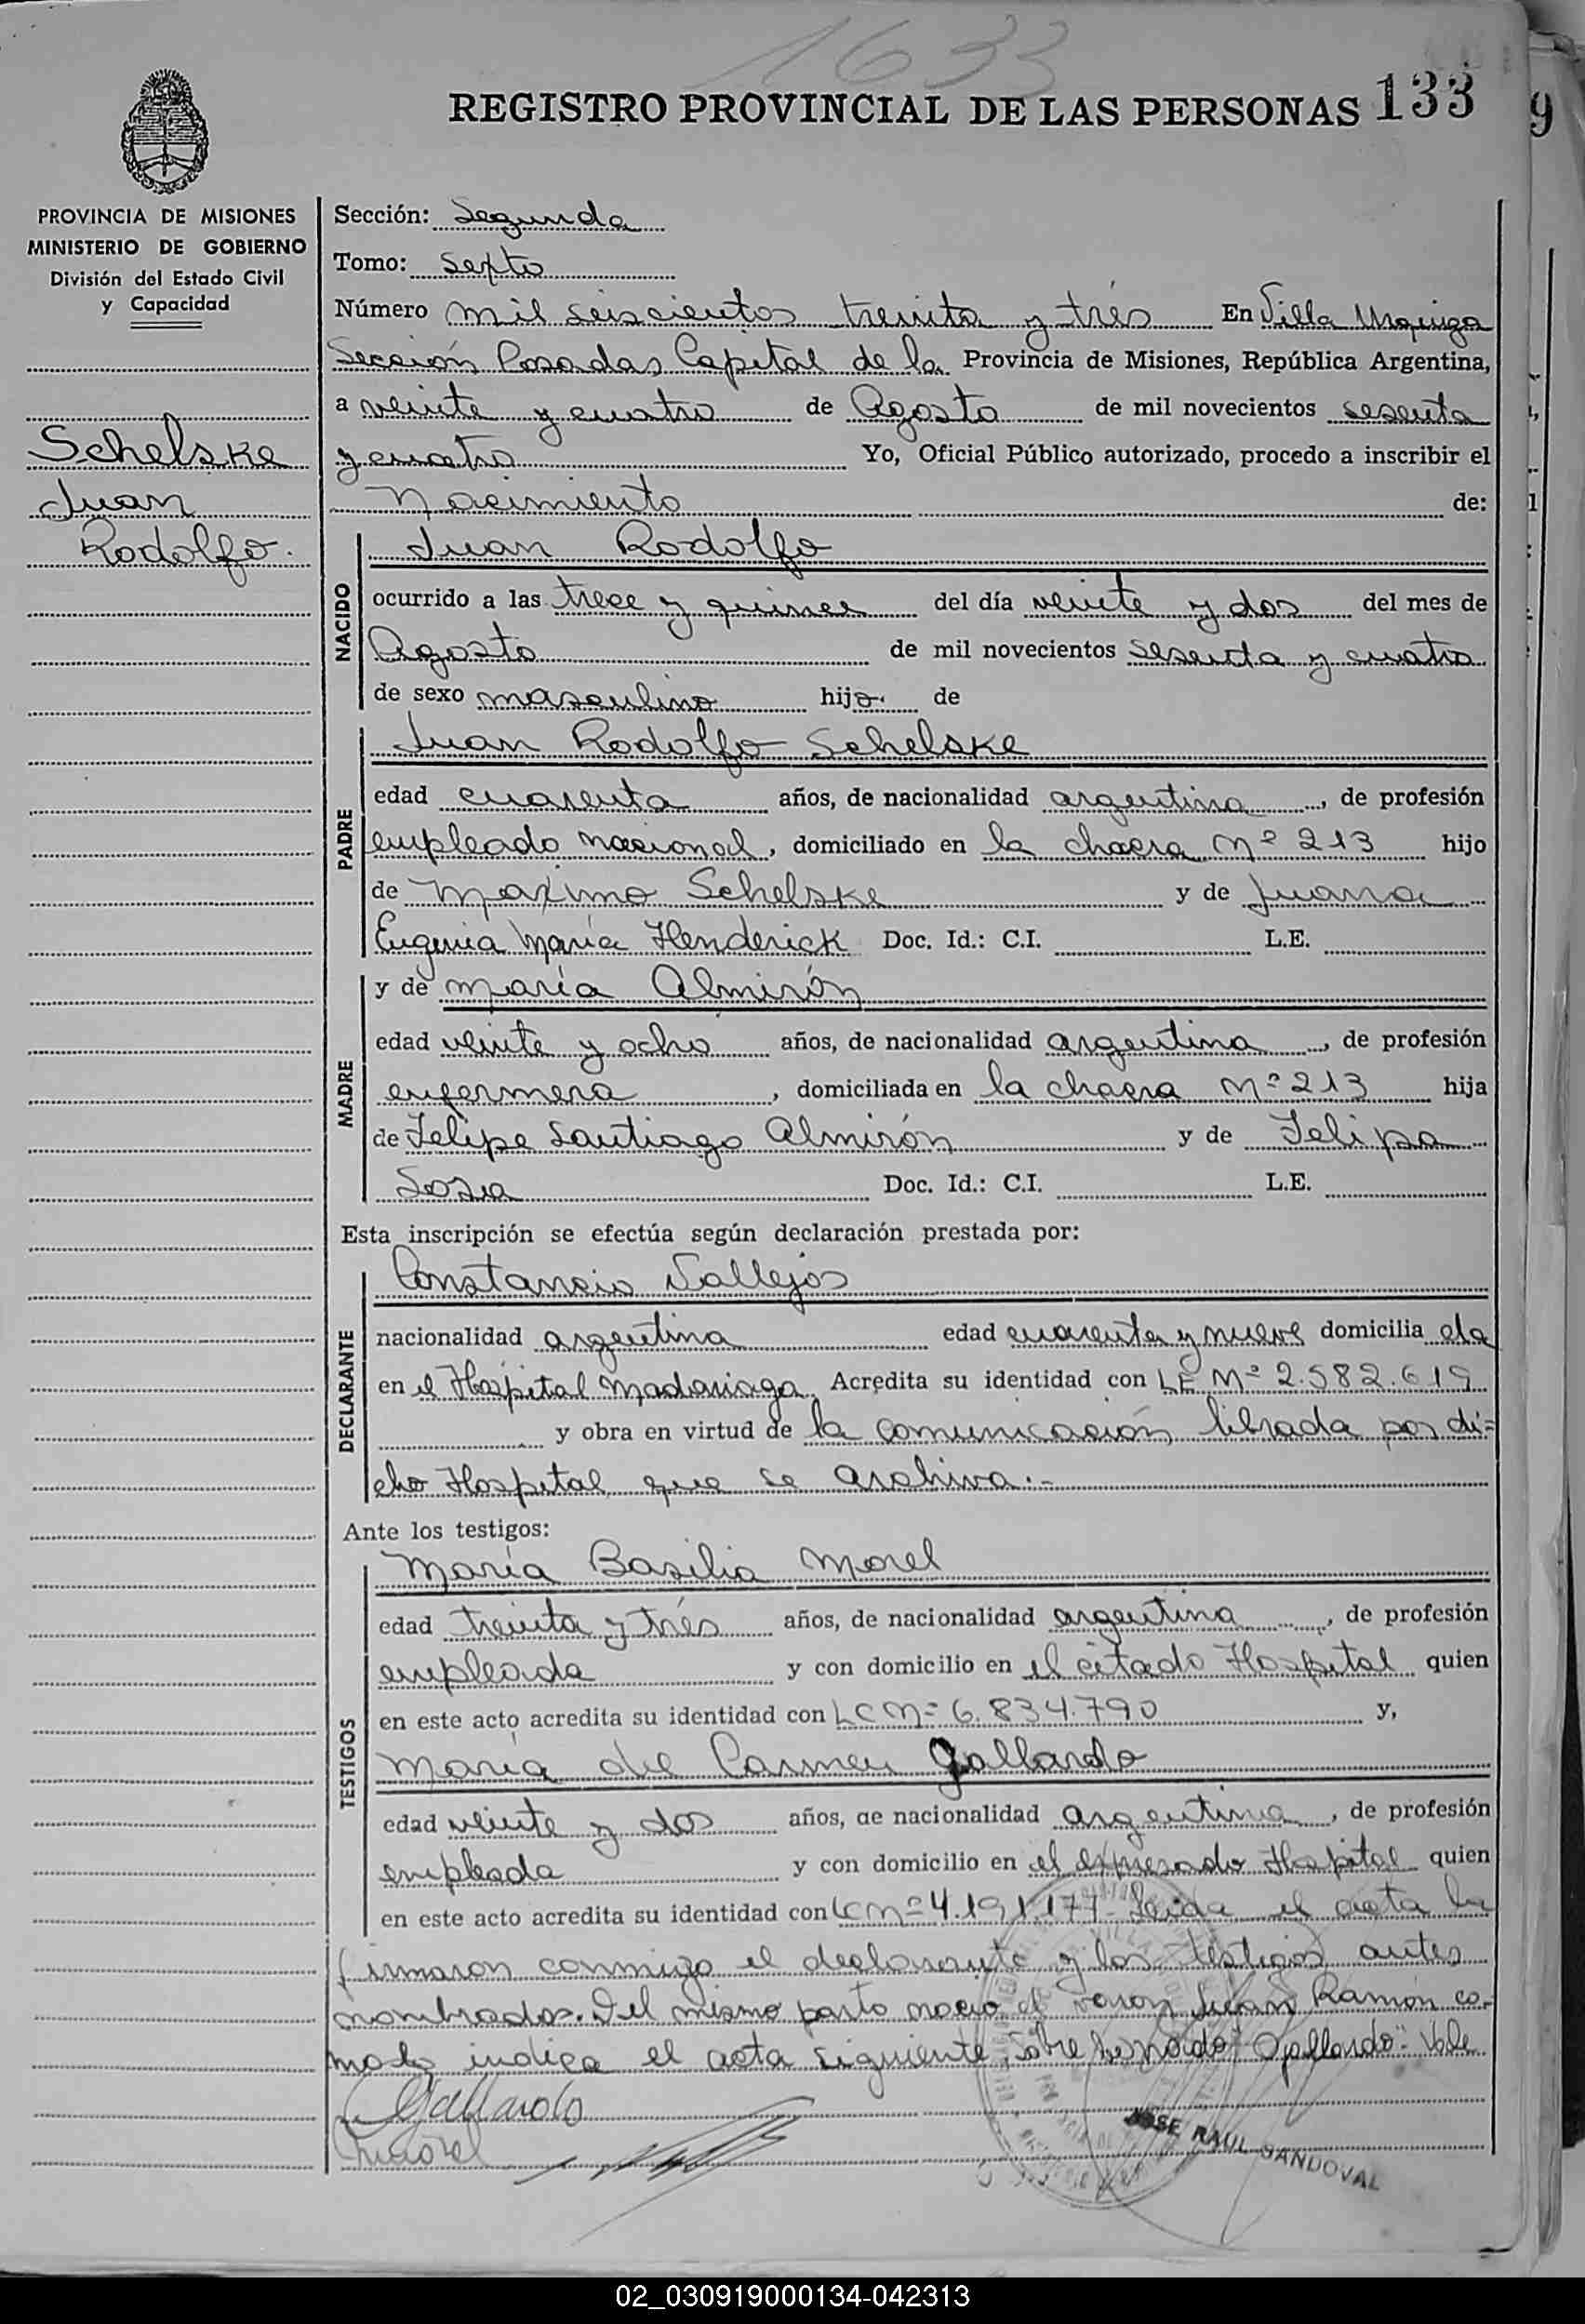 1633
REGISTRO PROVINCIAL DE LAS PERSONAS 133
9
PROVINCIA DE MISIONES
MINISTERIO DE GOBIERNO
División del Estado Civil
y Capacidad
Schelske
Juan
Rodolfo.
Sección: Segunda
Tomo: Sexto
Número mil seiscientos treinta y trés En Villa Urquiza
Sección Posadas Capital de la Provincia de Misiones, República Argentina,
a veinte y cuatro de Agosto de mil novecientos sesenta
y cuatro Yo, Oficial Público autorizado, procedo a inscribir el
Nacimiento de:
NACIDO
Juan Rodolfo
ocurrido a las trece y quince del día veinte y dos del mes de
Agosto de mil novecientos sesenta y cuatro
de sexo masculino hijo de
PADRE
Juan Rodolfo Schelske
edad cuarenta años, de nacionalidad argentina, de profesión
empleado nacional, domiciliado en la chacra Nº 213 hijo
de Maximo Schelske y de Juana
Eugenia María Henderick Doc. Id.: C.I. L.E.
MADRE
y de María Almirón
edad veinte y ocho años, de nacionalidad argentina, de profesión
enfermera, domiciliada en la chacra Nº 213 hija
de Felipe Santiago Almirón y de Felipa
Sosa Doc. Id.: C.I. L.E.
Esta inscripción se efectúa según declaración prestada por:
DECLARANTE
Constancio Vallejos
nacionalidad argentina edad cuarenta y nueve domicilia da
en el Hospital Madariaga. Acredita su identidad con LE Nº 2.582.619
y obra en virtud de la comunicación librada por di=
cho Hospital que se archiva.-
Ante los testigos:
TESTIGOS
María Basilia Morel
edad treinta y trés años, de nacionalidad argentina, de profesión
empleada y con domicilio en el citado Hospital quien
en este acto acredita su identidad con LC Nº 6.834.790 y,
María del Carmen Gallardo
edad veinte y dos años, de nacionalidad argentina, de profesión
empleada y con domicilio en el expresado Hospital quien
en este acto acredita su identidad con LC Nº 4.191.177- Leida el acta la
firmaron conmigo el declarante y los testigos antes
nombrados. Del mismo parto nació el varon Juan Ramón co-
mo lo indica el acta siguiente, Sobre borrado "Gallardo": Vale
Gallardo
Morel
JOSE RAUL SANDOVAL
02_030919000134-042313